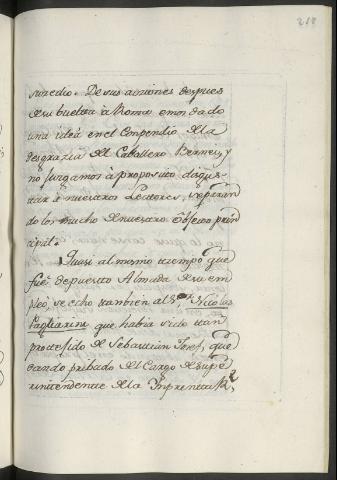 218
suzedio. De sus acciones despues
de su buelta à Roma emos dado
una idea en el Conpendio de la
desgrazia del Caballero Berney, y
no jusgamos à proposito disgus-
tar à nuestros Lectores, separan
dolos mucho de nuestro Obgeto prin
cipal.
Quasi al mismo tiempo que
fue depuesto Almada de su em
pleo, se echo tanbien al Sr. Nicolas
Pagliarini que habia sido tan
protegido de Sebastian Josef, que
dando pribado del Cargo de supe
rintendente de la Inprenta Rl.